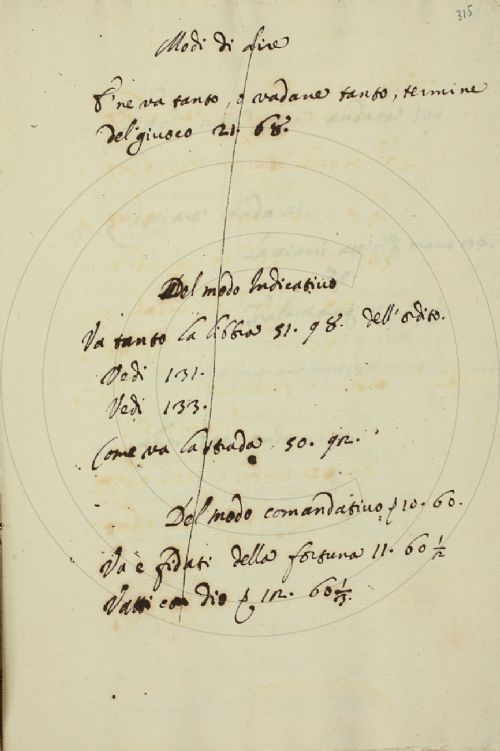 315
Modi di dire
S'ne va tanto, o vadane tanto, termine
del giuoco 21. 68.
Del modo Indicativo
Va tanto la libbra 51. 98. dell'ordito.
Vedi 131.
Vedi 133.
Come va la strada. 50. 92.
Del modo comandativo 10. 60.
Va è fidati della fortuna 11. 60 1/2
Vatti con dio 12. 60 1/3.